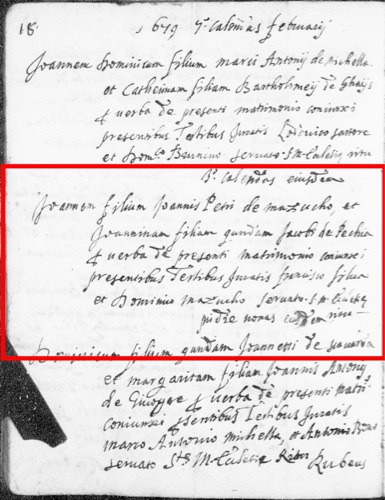 18. 1679 7.º Calendas februarij
Joannem Dominicum filium marci Antonij de michella
et Catherinam filiam Bartholomej de
p verba de presenti matrimonio coniunxi
presentibus Testibus Juratis Lodovico sartore
et Dom.co servato S. M. Ecclesie ritu
3.º Calendas eiusdem
Joannem filium Joannis Petri de mazucho, et
Joanninam filiam quondam Jacobi de Pechia
p verba de presenti matrimonio coniunxi
presentibus Testibus Juratis francisco
et Dominico mazucho servato S. M. Ecclesie
pridie nonas eiusdem ritu
Dominicum filium quondam Joannetti de
et margaritam filiam Joannis Antonij
de p verba de presenti matri.
coniunxi presentibus Testibus Juratis
marco Antonio michella, et Antonio
servato S. M. Ecclesie Ritu Rubeus